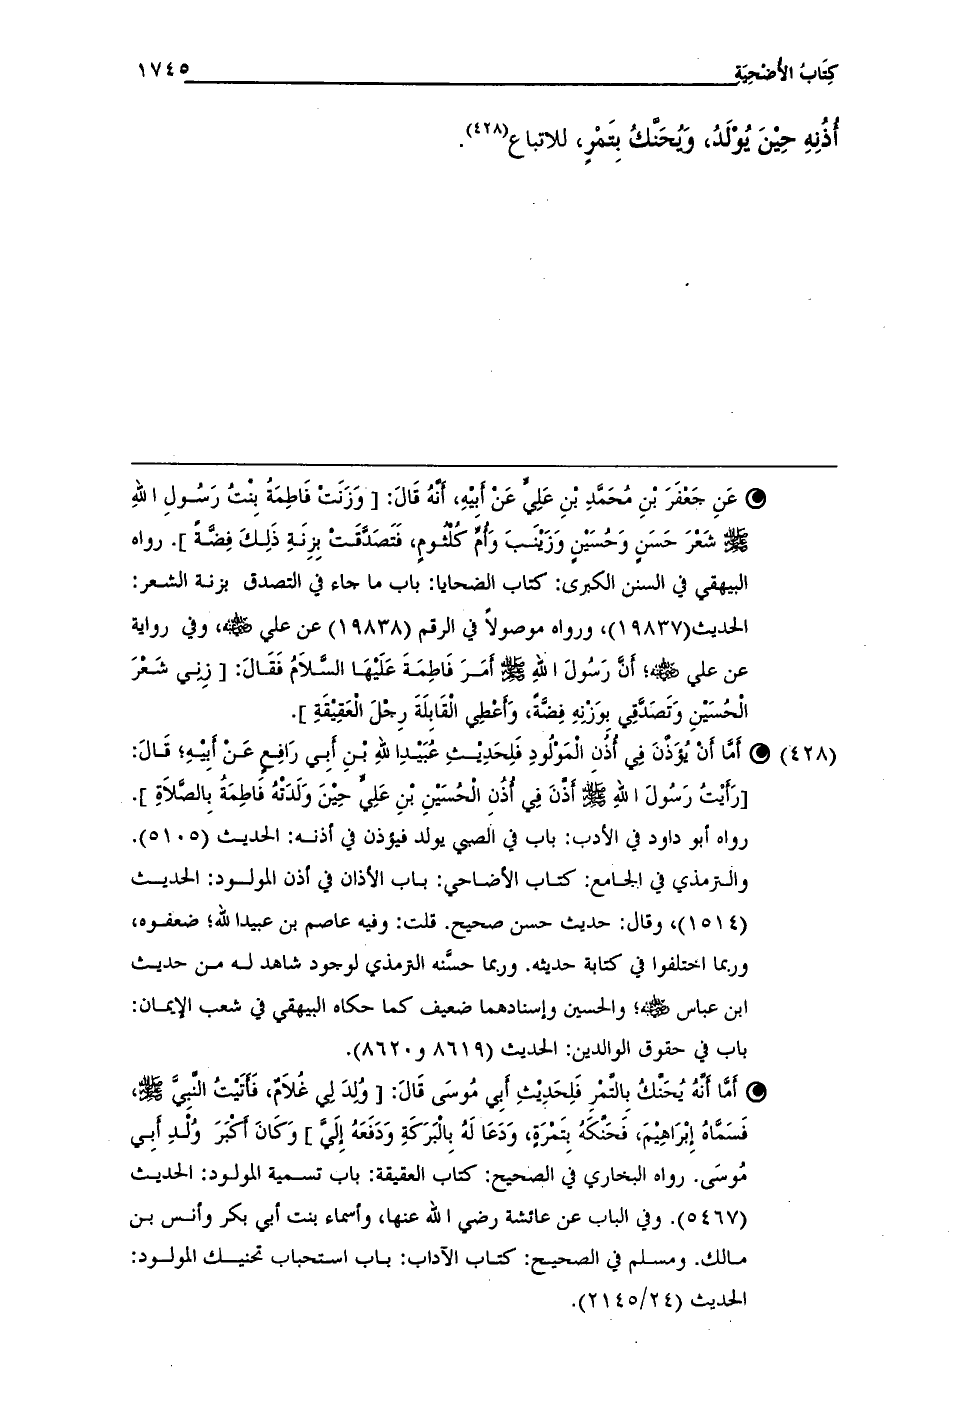 كِتَابُ الأُضْحِيَةِ ١٧٤٥
أُذُنِهِ حِيْنَ يُوْلَدُ، وَيُحَنَّكُ بِتَمْرٍ، للاتباع(٤٢٨).
عَنِ جَعْفَرَ بْنِ مُحَمَّدِ بْنِ عَلِيٍّ عَنْ أَبِيْهِ، أَنَّهُ قَالَ: [ وَزَنَتْ فَاطِمَةُ بِنْتُ رَسُولِ اللهِ
ﷺ شَعْرَ حَسَنٍ وَحُسَيْنٍ وَزَيْنَبَ وَأُمِّ كُلْثُومٍ، فَتَصَدَّقَتْ بِزِنَةِ ذَلِكَ فِضَّةً ]. رواه
البيهقي في السنن الكبرى: كتاب الضحايا: باب ما جاء في التصدق بزنة الشعر:
الحديث(١٩٨٣٧)، ورواه موصولاً في الرقم (١٩٨٣٨) عن علي ﵁، وفي رواية
عن علي ﵁؛ أَنَّ رَسُولَ اللهِ ﷺ أَمَرَ فَاطِمَةَ عَلَيْهَا السَّلاَمُ فَقَالَ: [ زِنِي شَعْرَ
الْحُسَيْنِ وَتَصَدَّقِي بِوَزْنِهِ فِضَّةً، وَأَعْطِي الْقَابِلَةَ رِجْلَ الْعَقِيْقَةِ ].
(٤٢٨) أَمَّا أَنْ يُؤَذَّنَ فِي أُذُنِ الْمَوْلُودِ فَلِحَدِيْثِ عُبَيْدِاللهِ بْنِ أَبِي رَافِعٍ عَنْ أَبِيْهِ؛ قَالَ:
[رَأَيْتُ رَسُولَ اللهِ ﷺ أَذَّنَ فِي أُذُنِ الْحُسَيْنِ بْنِ عَلِيٍّ حِيْنَ وَلَدَتْهُ فَاطِمَةُ بِالصَّلاَةِ ].
رواه أبو داود في الأدب: باب في الصبي يولد فيؤذن في أذنه: الحديث (٥١٠٥).
والترمذي في الجامع: كتاب الأضاحي: باب الأذان في أذن المولود: الحديث
(١٥١٤)، وقال: حديث حسن صحيح. قلت: وفيه عاصم بن عبيدالله؛ ضعفوه،
وربما اختلفوا في كتابة حديثه. وربما حسَّنه الترمذي لوجود شاهد له من حديث
ابن عباس ﵁؛ والحسين وإسنادهما ضعيف كما حكاه البيهقي في شعب الإيمان:
باب في حقوق الوالدين: الحديث (٨٦١٩ و٨٦٢٠).
أَمَّا أَنَّهُ يُحَنَّكُ بِالتَّمْرِ فَلِحَدِيْثِ أَبِي مُوسَى قَالَ: [ وُلِدَ لِي غُلاَمٌ، فَأَتَيْتُ النَّبِيَّ ﷺ،
فَسَمَّاهُ إِبْرَاهِيْمَ، فَحَنَّكَهُ بِتَمْرَةٍ، وَدَعَا لَهُ بِالْبَرَكَةِ وَدَفَعَهُ إِلَيَّ ] وَكَانَ أَكْبَرَ وُلْدِ أَبِي
مُوسَى. رواه البخاري في الصحيح: كتاب العقيقة: باب تسمية المولود: الحديث
(٥٤٦٧). وفي الباب عن عائشة رضي الله عنها، وأسماء بنت أبي بكر وأنس بن
مالك. ومسلم في الصحيح: كتاب الآداب: باب استحباب تحنيك المولود:
الحديث (٢١٤٥/٢٤).